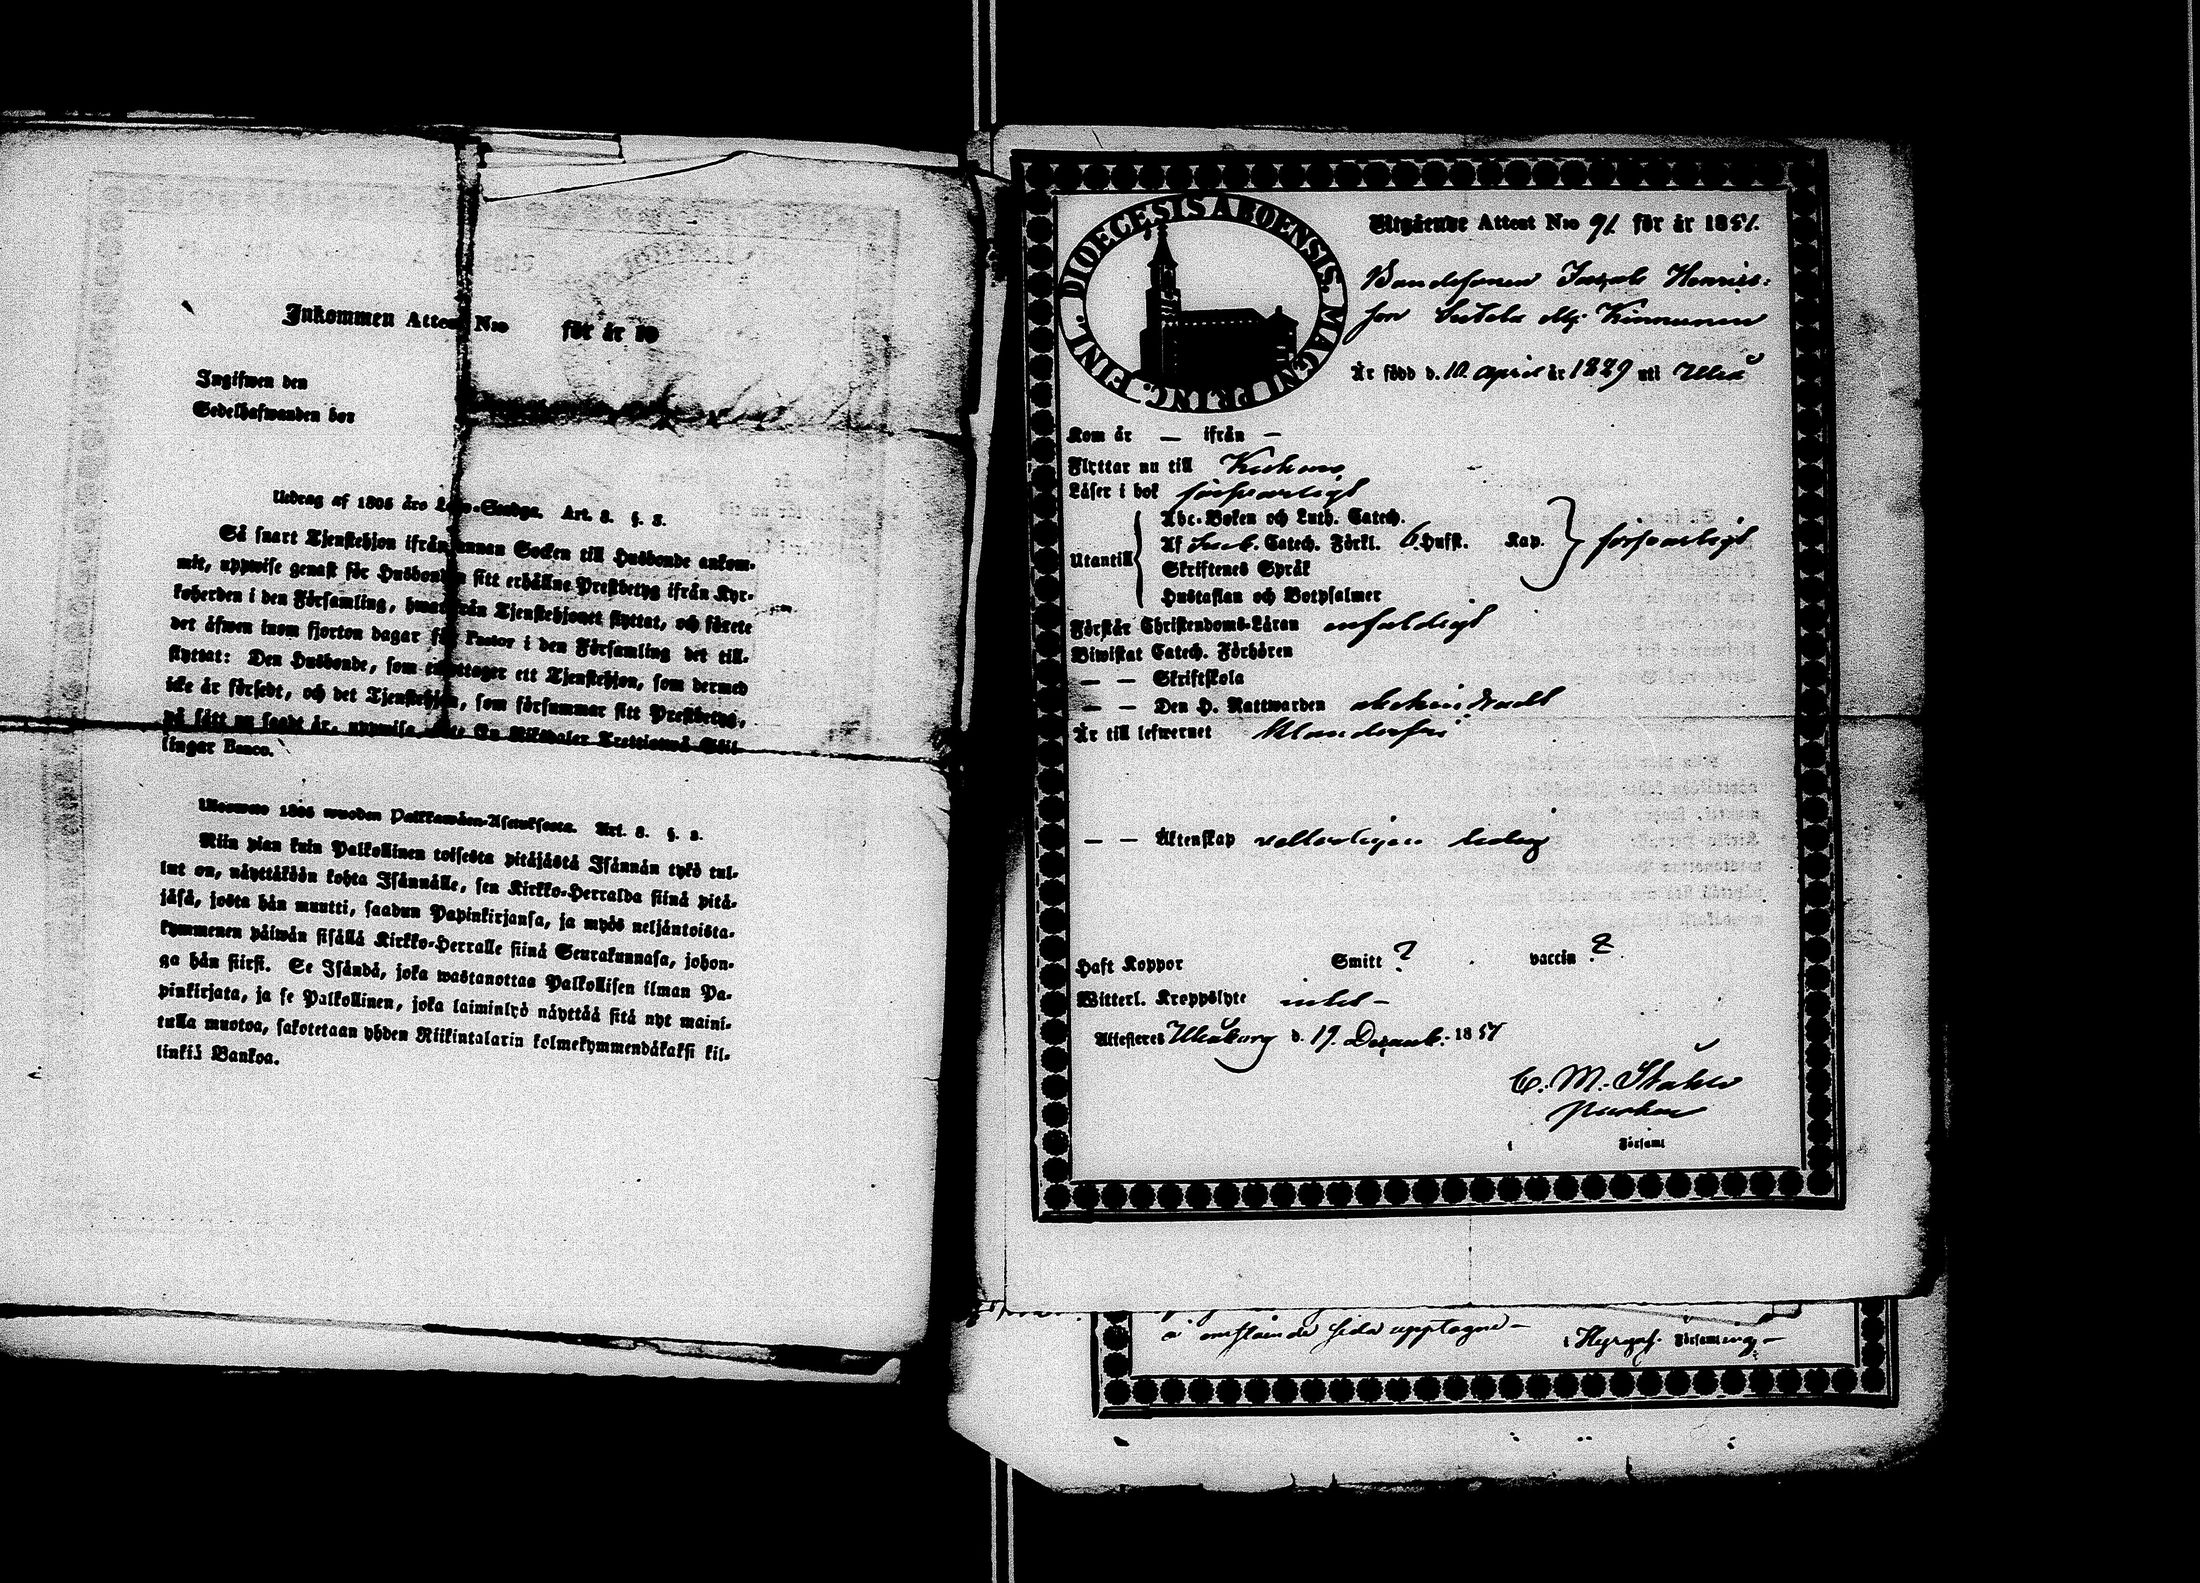 Inkommen Attest N:o för år 18
Ingifwen den
Sedelhafwanden bor
Utdrag af 1805 års Lego-Stadga. Art. 8. §. 2.
Så snart Tjenstehjon ifrån annan Socken till Husbonde ankom-
mit, uppwise genast för Husbonden sitt erhållna Prestbetyg ifrån Kyr-
koherden i den Församling, hwarifrån Tjenstehjonet flyttat, och förete
det äfwen inom fjorton dagar för Pastor i den Församling det till-
flyttat: Den Husbonde, som emottager ett Tjenstehjon, som dermed
icke är försedt, och det Tjenstehjon, som försummar sitt Prestbetyg,
på sätt nu sagdt är, uppwisa, böte En Riksdaler Trettiotwå Skil-
lingar Banco.
Ulosweto 1805 wuoden Palkkawäen-Asetuksesta. Art. 8. §. 2.
Niin pian kuin Palkollinen toisesta pitäjästä Isännän tykö tul-
lut on, näyttäköön kohta Isännälle, sen Kirkko-Herralda siinä pitä-
jäsä, josta hän muutti, saadun Papinkirjansa, ja myös neljäntoista-
kymmenen päiwän sisällä Kirkko-Herralle siinä Seurakunnasa, johon-
ga hän siirsi. Se Isändä, joka wastanottaa Palkollisen ilman Pa-
pinkirjata, ja se Palkollinen, joka laiminlyö näyttää sitä nyt maini-
tulla muotoa, sakotetaan yhden Riikintalarin kolmekymmendäkaksi kil-
linkiä Bankoa.
DIOECESIS ABOENSIS. MAGNI PRINC. FINL.
Utgående Attest N:o 91 för år 1851.
Bondesonen Jacob Henrics:
son Kinnunen
Är född d. 10. april år 1829 uti Uleå
Kom år — ifrån —
Flyttar nu till
Läser i bok försvarligt
Abc-Boken och Luth. Catech.
Utantill Af Catech. Förkl. 6. Hufst. Kap. försvarligt
Skriftenes Språk
Hustaflan och Botpsalmer
Förstår Christendoms-Läran enfaldigt
Biwistat Catech. Förhören
— — Skriftskola
— — Den H. Nattwarden
Är till lefwernet klanderfri
— — Äktenskap veterligen ledig
Haft Koppor Smitt ? vaccin ?
Witterl. Kroppslyte intet —
Attesteres Uleåborg d. 19. Decemb. 1851
C. M. Ståhle
Församl
å omstående sida upptagne —
i Församling —